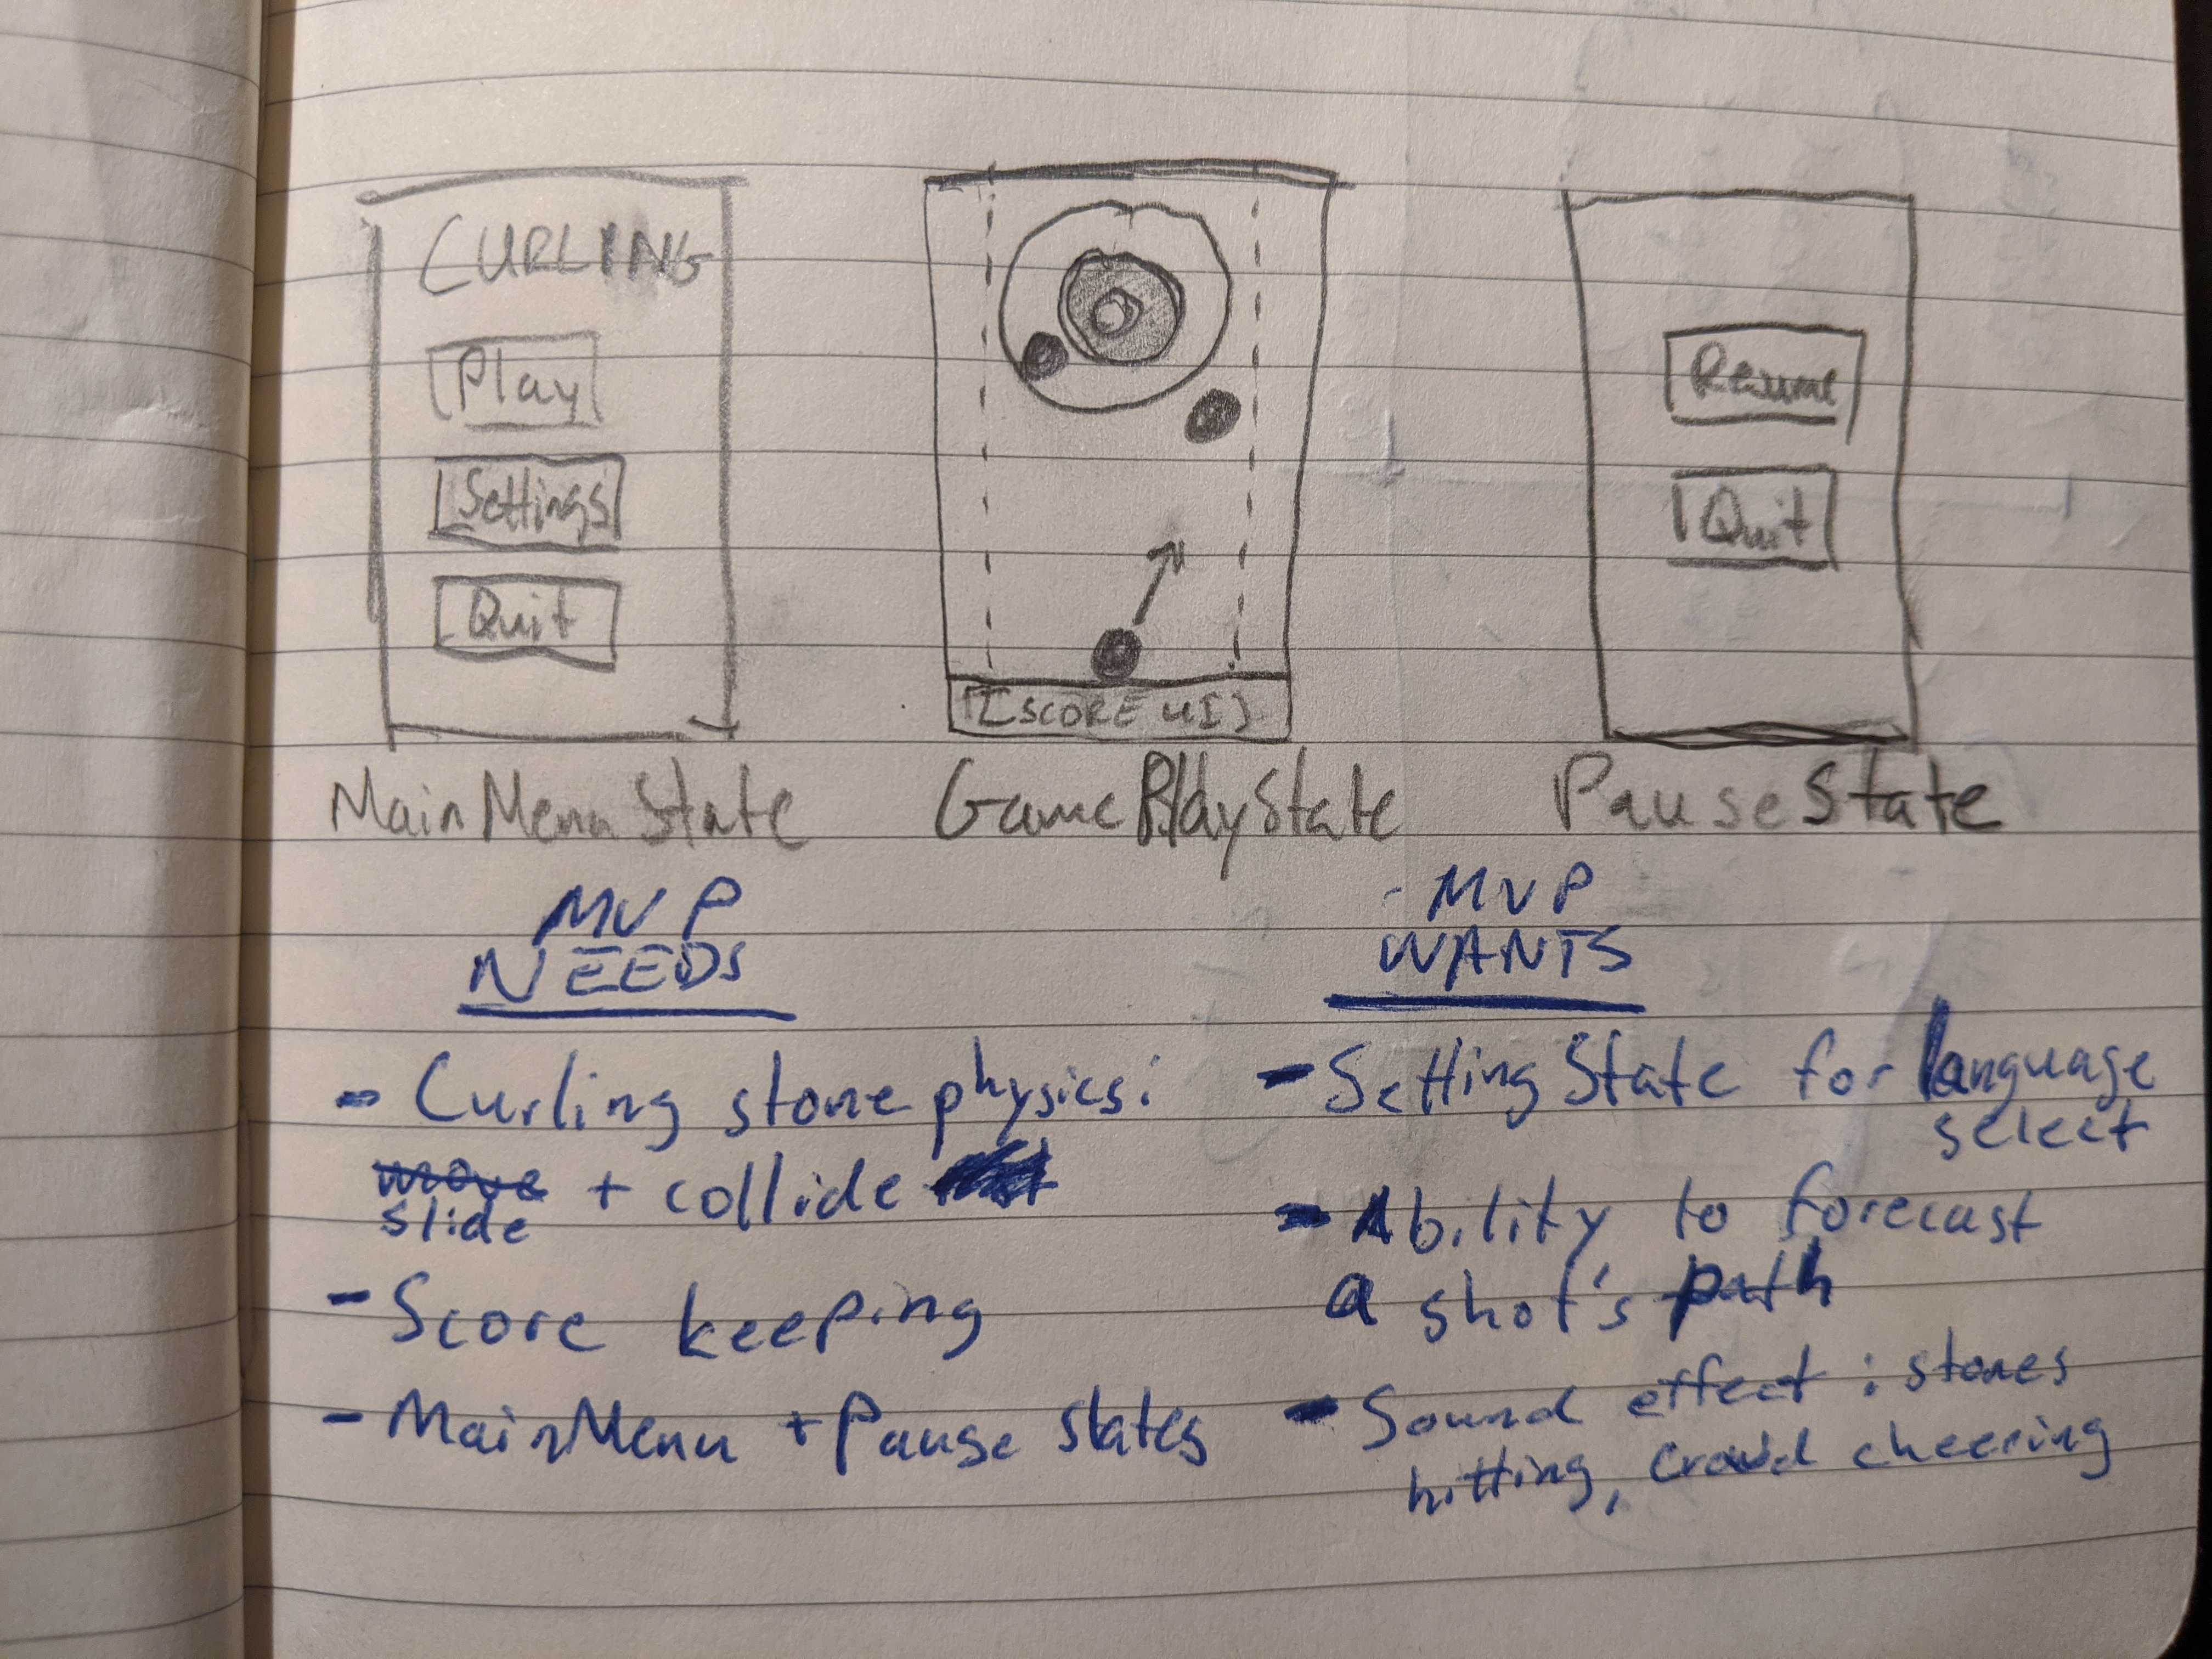 CURLING
Play
Settings
Quit
MainMenuState
[SCORE UI]
GamePlayState
Resume
Quit
PauseState
MVP
NEEDS
- Curling stone physics:
move + collide
slide
- Score keeping
- MainMenu + Pause states
MVP
WANTS
- SettingState for language
select
- Ability to forecast
a shot's path
- Sound effect: stones
hitting, crowd cheering